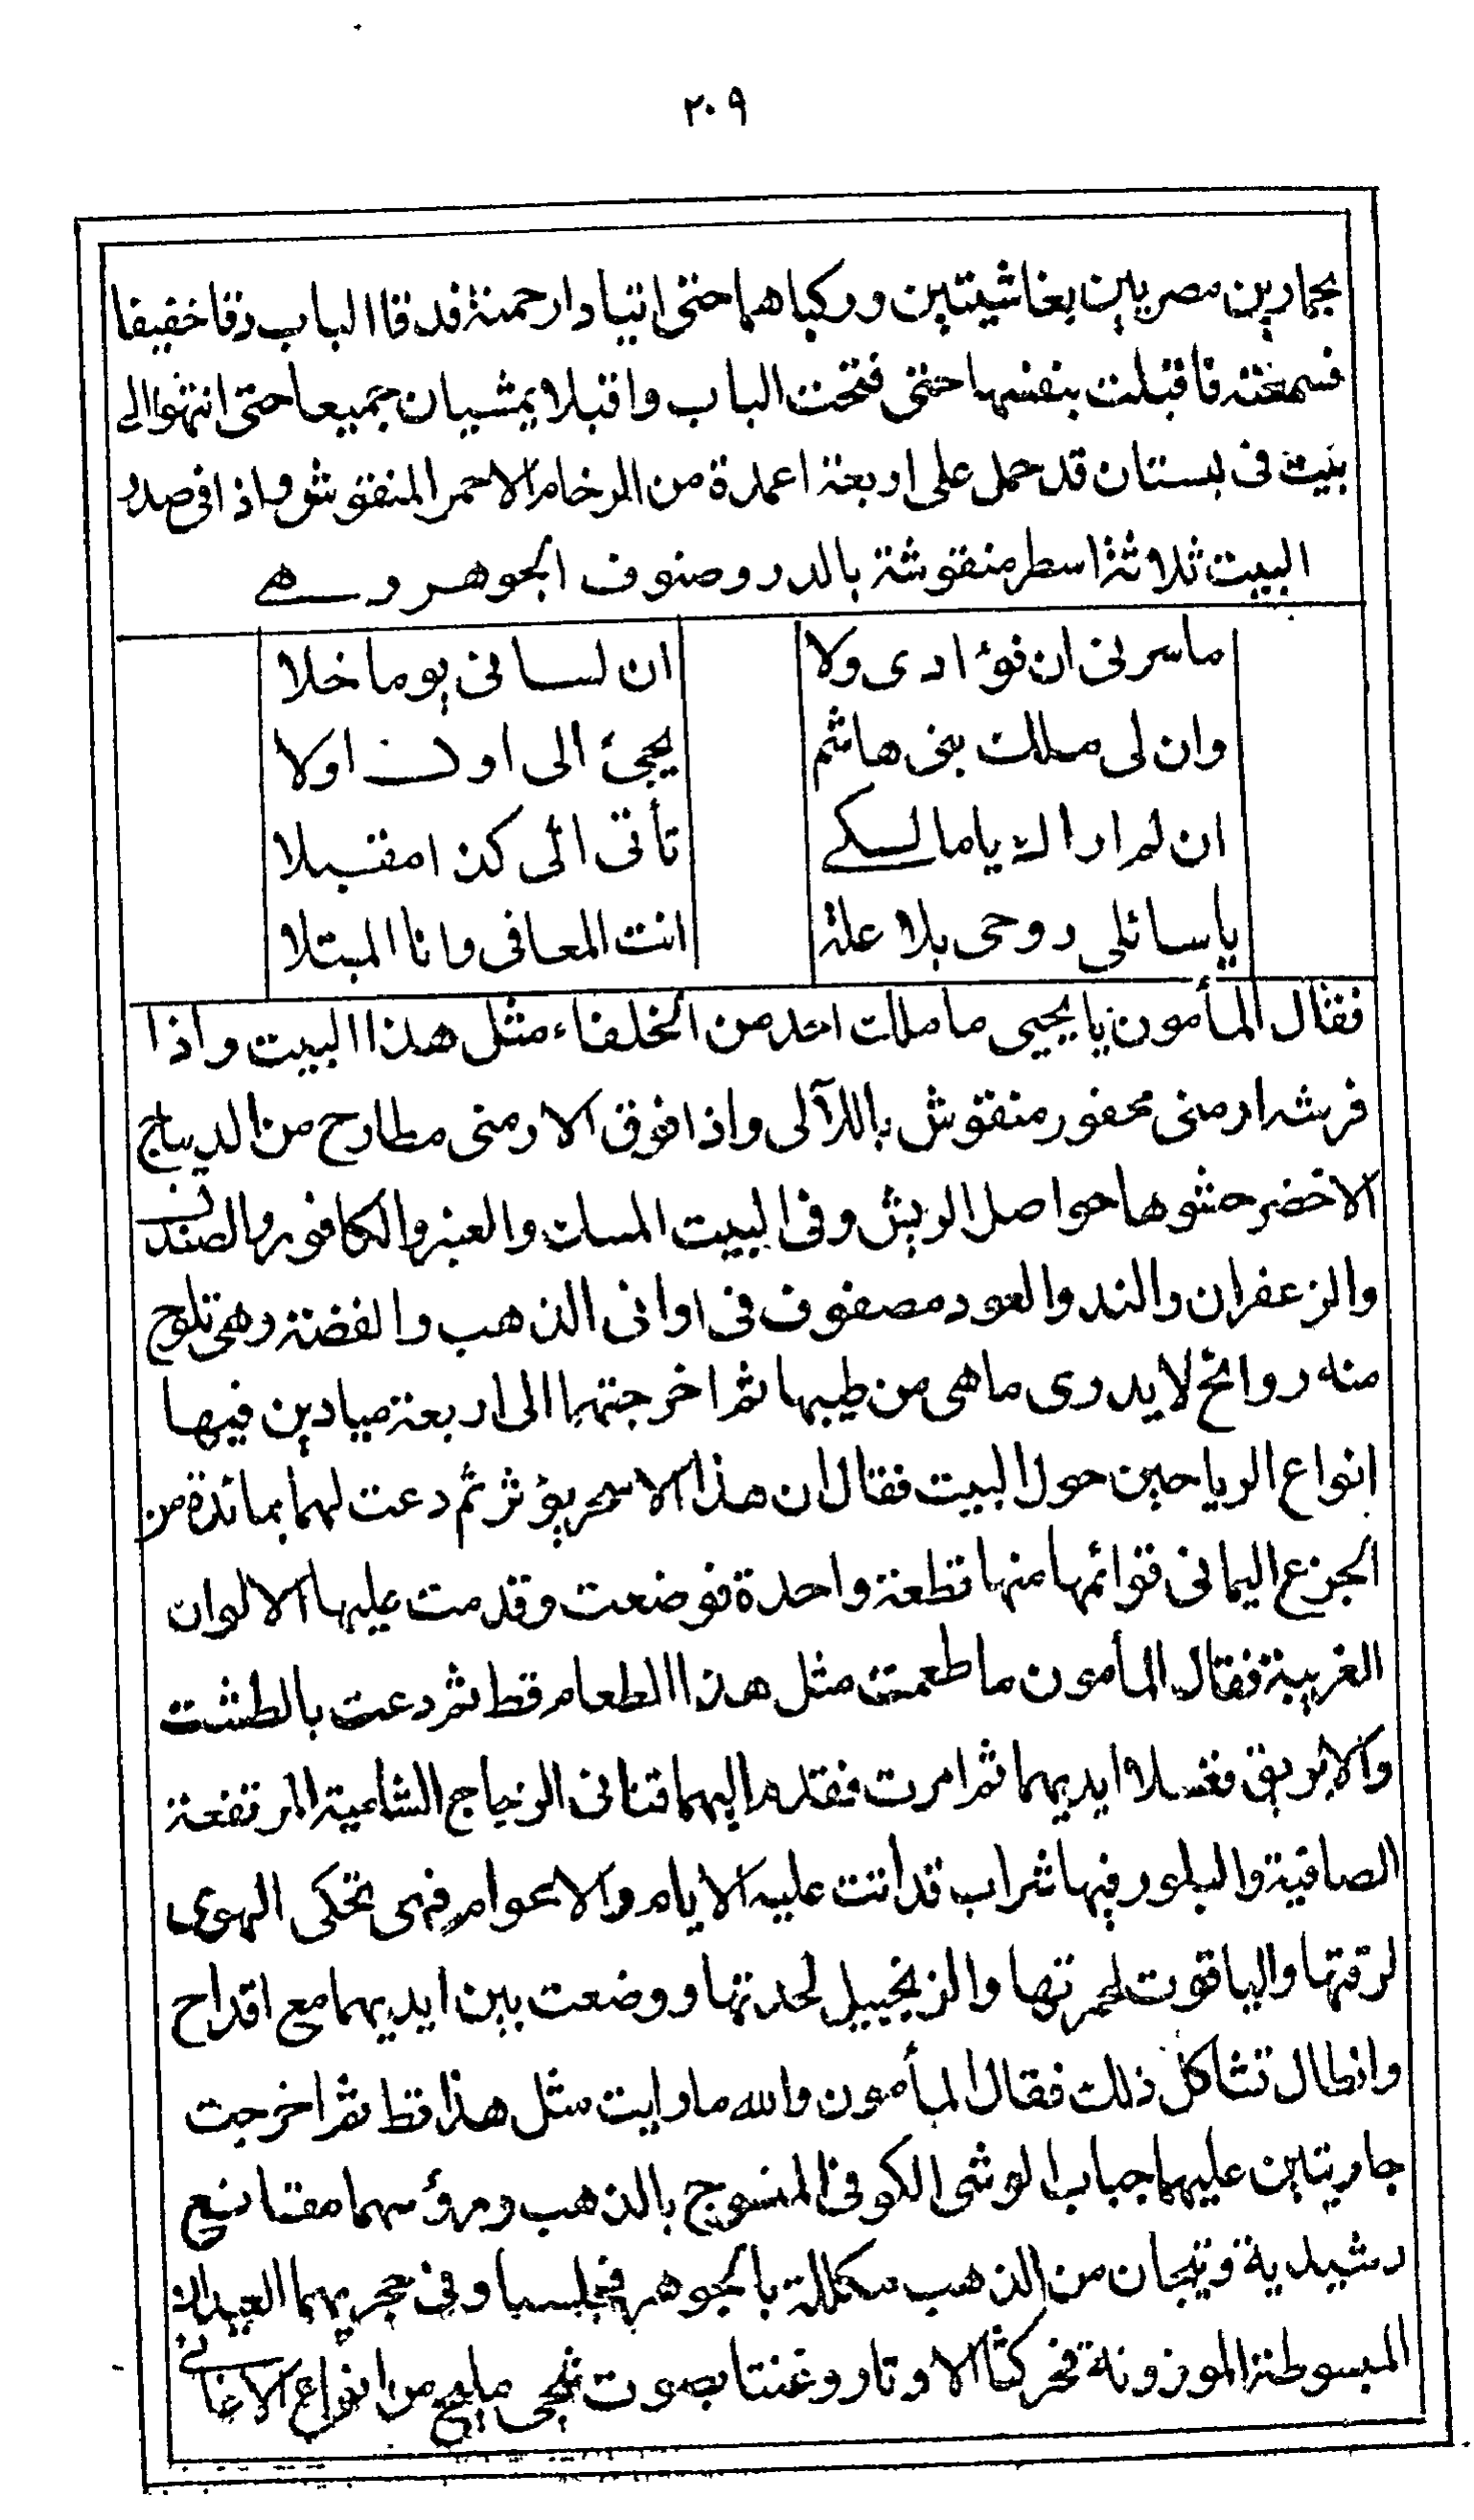 ٢٠٩
بحمارين مصريين بغاشيتين وركباهما حتى اتيا دار حمنة فدقا الباب دقا خفيفا
فسمعته فاقبلت بنفسها حتى فتحت الباب واقبلا يمشيان جميعا حتى انتهوا الى
بيت فى بستان قد حمل على اربعة اعمدة من الرخام الاحمر المنقوش واذا فى صدر
البيت ثلاثة اسطر منقوشة بالدر وصنوف الجوهر وهى
ما سرنى ان فؤادى ولا ان لسانى يوما خلا
وان لى ملك بنى هاشم يجئ الى اولا اولا
ان لم اراك يا مالكى تأتى الى كذا مقبلا
يا سائلى روحى بلا علة انت المعافى وانا المبتلا
فقال المأمون يا يحيى ما ملك احد من الخلفاء مثل هذا البيت واذا
فرشه ارمنى محفور منقوش باللآلى واذا فوق الارمنى مطارح من الديباج
الاخضر حشوها حواصل الريش وفى البيت المسك والعنبر والكافور والصندل
والزعفران والند والعود مصفوف فى اوانى الذهب والفضة وهى تلوح
منه روائح لا يدرى ما هى من طيبها ثم اخرجتهما الى اربعة ميادين فيها
انواع الرياحين حول البيت فقال ان هذا لاسحر يؤثر ثم دعت لهما بمائدة من
الجزع اليمانى قوائمها منها قطعة واحدة فوضعت وقدمت عليها الالوان
الغريبة فقال المأمون ما طعمت مثل هذا الطعام قط ثم دعت بالطشت
والابريق فغسلا ايديهما ثم امرت فقدم اليهما قنانى الزجاج الشامية المرتفعة
الصافية والبلور فيها شراب قد اتت عليه الايام والاعوام فهى تحكى الهوى
لرقتها والياقوت لحمرتها والزنجبيل لحدتها ووضعت بين ايديهما مع اقداح
وارطال تشاكل ذلك فقال المأمون والله ما رايت مثل هذا قط ثم اخرجت
جاريتين عليهما جباب الوشى الكوفى المنسوج بالذهب ورؤسهما مقانع
رشيدية وتيجان من الذهب مكللة بالجوهر فجلسا وفى حجريهما العيدان
المبسوطة الموزونة فحركتا الاوتار وغنتا بصوت شجى مليح من انواع الاغانى